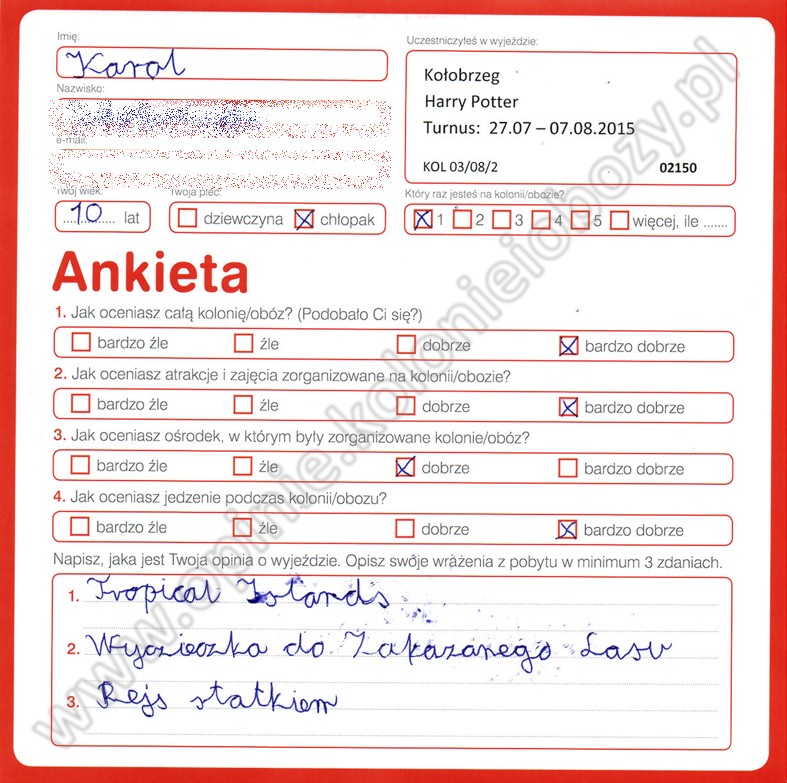 Imię:
Karol
Nazwisko:
e-mail:
Twój wiek:
10 lat
Twoja płeć:
dziewczyna chłopak
Uczestniczyłeś w wyjeździe:
Kołobrzeg
Harry Potter
Turnus: 27.07 – 07.08.2015
KOL 03/08/2 02150
Który raz jesteś na kolonii/obozie?
1 2 3 4 5 więcej, ile .......
Ankieta
1. Jak oceniasz całą kolonię/obóz? (Podobało Ci się?)
bardzo źle źle dobrze bardzo dobrze
2. Jak oceniasz atrakcje i zajęcia zorganizowane na kolonii/obozie?
bardzo źle źle dobrze bardzo dobrze
3. Jak oceniasz ośrodek, w którym były zorganizowane kolonie/obóz?
bardzo źle źle dobrze bardzo dobrze
4. Jak oceniasz jedzenie podczas kolonii/obozu?
bardzo źle źle dobrze bardzo dobrze
Napisz, jaka jest Twoja opinia o wyjeździe. Opisz swoje wrażenia z pobytu w minimum 3 zdaniach.
1. Tropical Istands
2. Wycieczka do Zakazanego Lasu
3. Rejs statkiem
www.opinie.kolonieiobozy.pl